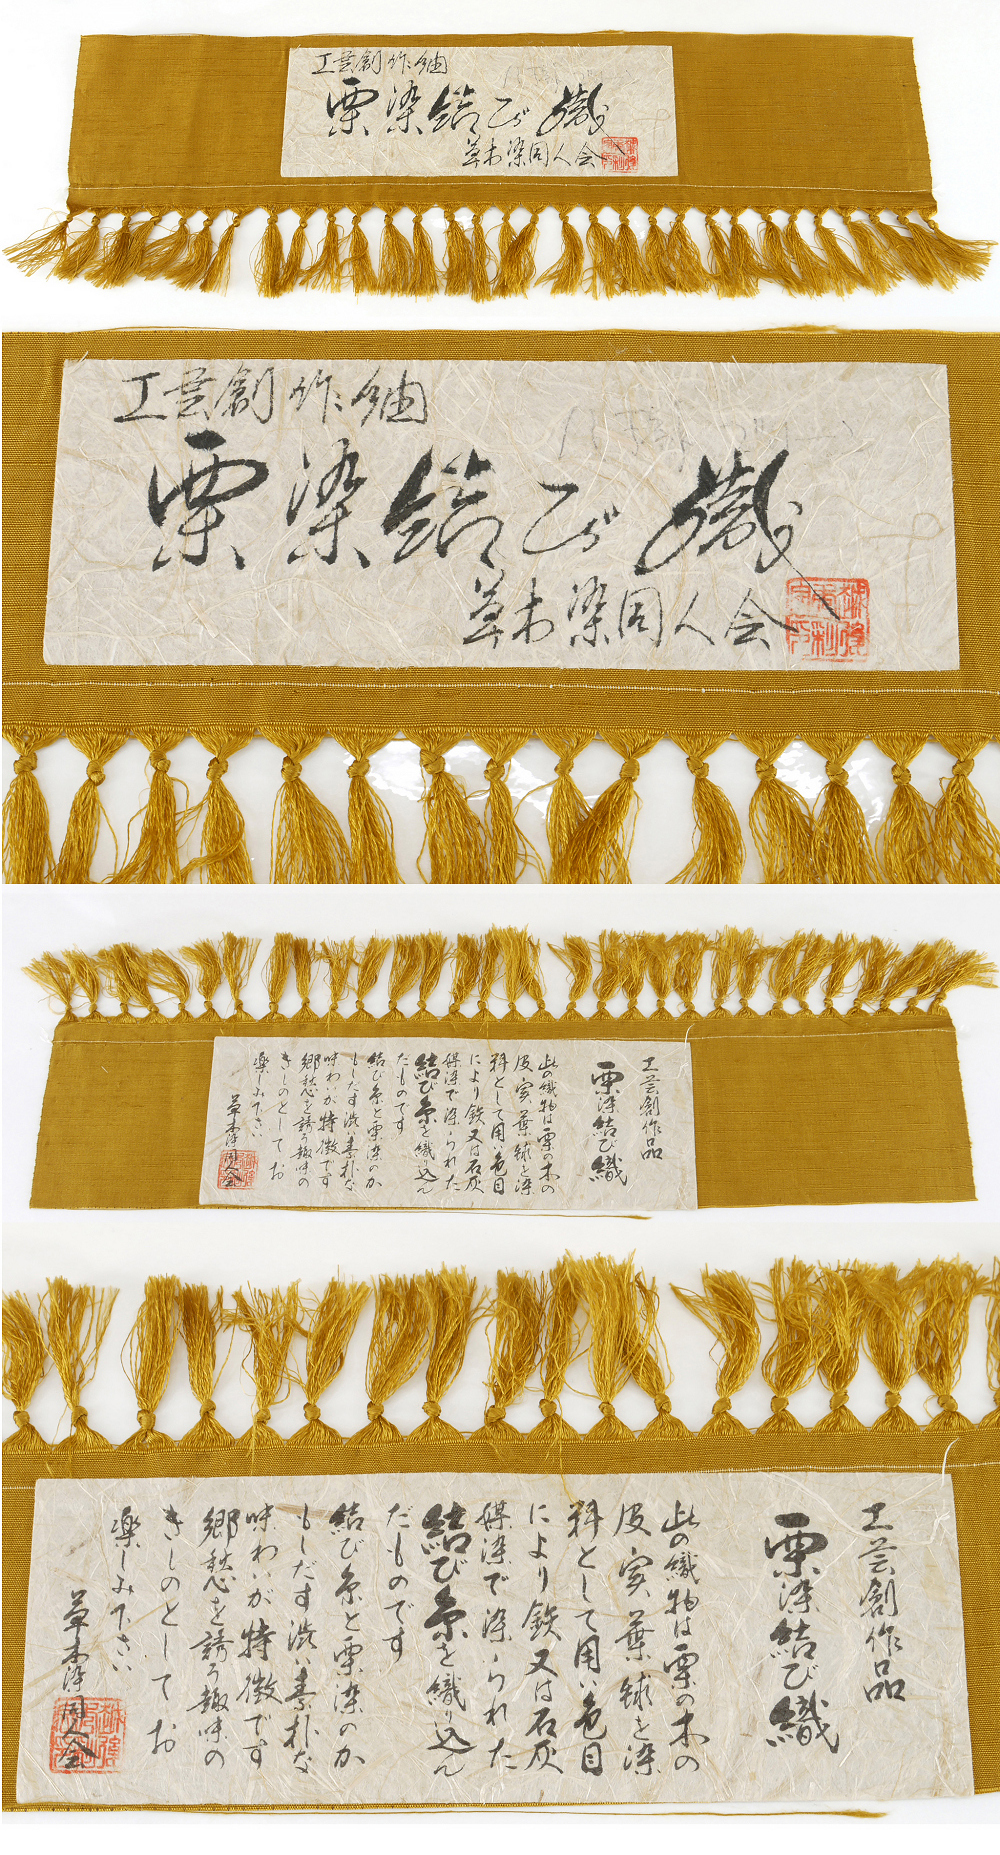 工芸創作紬
栗染結び織
草木染同人会
工芸創作紬
栗染結び織
草木染同人会
工芸創作品
栗染結び織
此の織物は栗の木の
皮実葉毬を染
料として用い色目
により鉄又は石灰
媒染で染られた
結び糸を織り込ん
だものです
結び糸と栗染のか
もしだす渋い素朴な
味わいが特徴です
郷愁を誘う趣味の
きものとしてお
楽しみ下さい
草木染同人会
工芸創作品
栗染結び織
此の織物は栗の木の
皮実葉毬を染
料として用い色目
により鉄又は石灰
媒染で染られた
結び糸を織り込ん
だものです
結び糸と栗染のか
もしだす渋い素朴な
味わいが特徴です
郷愁を誘う趣味の
きものとしてお
楽しみ下さい
草木染同人会